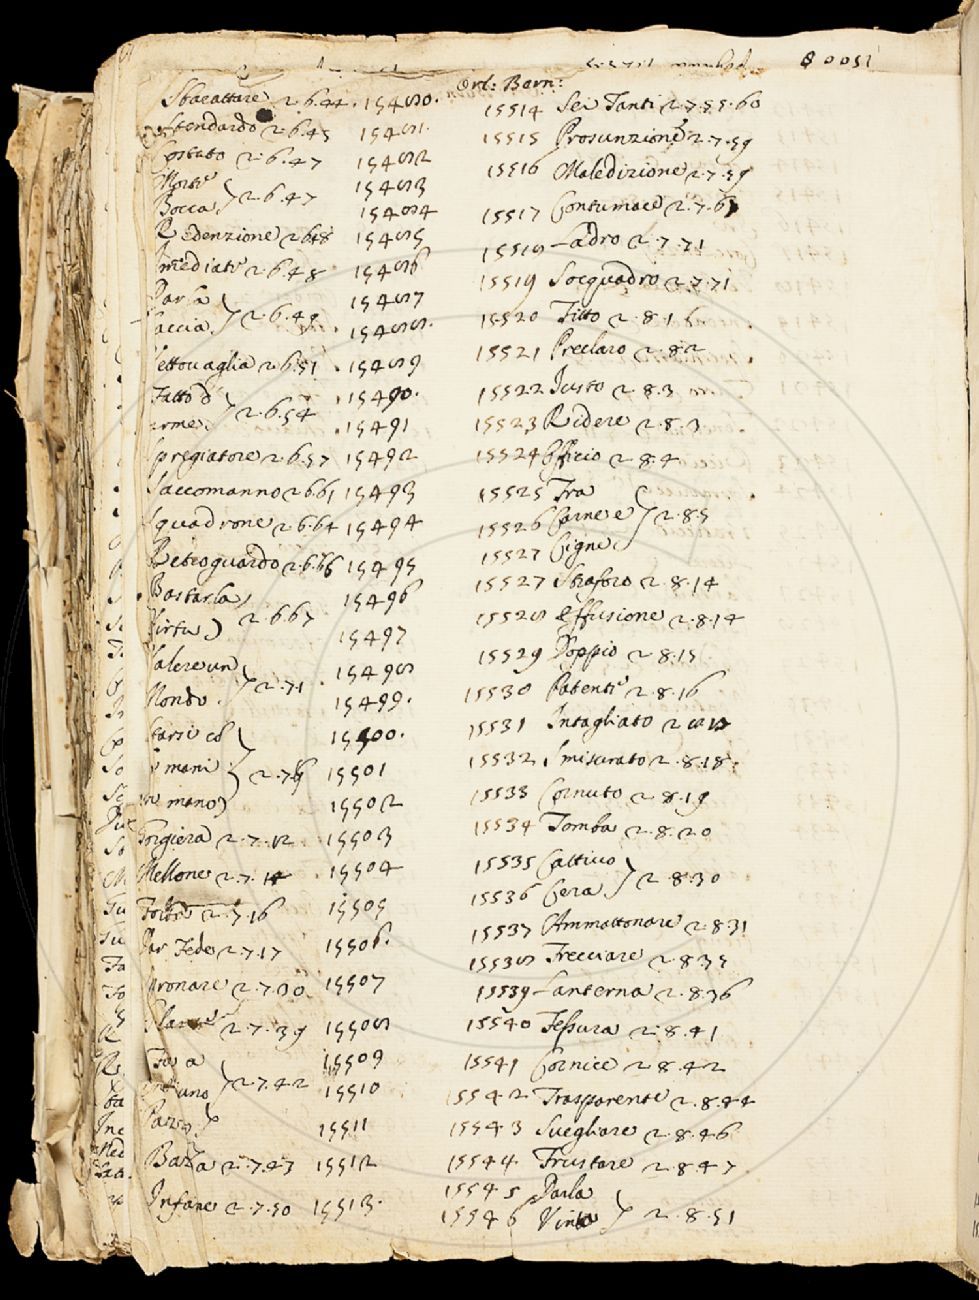 Orl: Bern:
Sbarattare 2.6.44. 15480.
Stendardo 2.6.45 15481.
Costato 2.6.47 15482
Morte 15483
Bocca } 2.6.47 15484
Redenzione 2.6.48 15485
Imediate 2.6.48 15486
15487
accia } 2.6.49 15488.
ettovaglia 2.6.51 15489
Fatto d' 15490.
arme } 2.6.54 15491
spregiatore 2.6.57 15492
Saccomanno 2.6.61 15493
squadrone 2.6.64 15494
Retroguardo 2.6.66 15495
Bastarla 15496
Virtu } 2.6.67 15497
Valere un 15498
Mondo } 2.7.1 15499.
starsi co 15500.
mani } 2.7.6 15501
mano 15502
Gorgiera 2.7.12 15503
Mellone 2.7.14 15504
2.7.16 15505
Par Fede 2.7.17 15506.
pronare 2.7.30 15507
2.7.39 15508
15509
uno } 2.7.42 15510
15511
2.7.47 15512
Infame 2.7.50 15513.
15514 Sei Tanti 2.7.55.60
15515 Prosunzione 2.7.59
15516 Maledizione 2.7.59
15517 Contumace 2.7.63
15518 Ladro 2.7.71
15519 Socquadro 2.7.71
15520 Fitto 2.8.1
15521 Preclaro 2.8.2
15522 Justo 2.8.3
15523 Ridere 2.8.3
15524 Officio 2.8.4
15525 Fra
15526 Carne e } 2.8.5
15527 Cigne
15527 Straforo 2.8.14
15528 Effusione 2.8.14
15529 Doppio 2.8.15
15530 Patente 2.8.16
15531 Intagliato 2.8.17
15532 Smisurato 2.8.18.
15533 Cornuto 2.8.19
15534 Tomba 2.8.20
15535 Cattivo
15536 Cera } 2.8.30
15537 Ammattonare 2.8.31
15538 Frecciare 2.8.35
15539 Lanterna 2.8.36
15540 Fessura 2.8.41
15541 Cornice 2.8.42
15542 Trasparente 2.8.44
15543 Svegliare 2.8.46
15544 Frustare 2.8.47
15545 Darla
15546 Vinta } 2.8.51